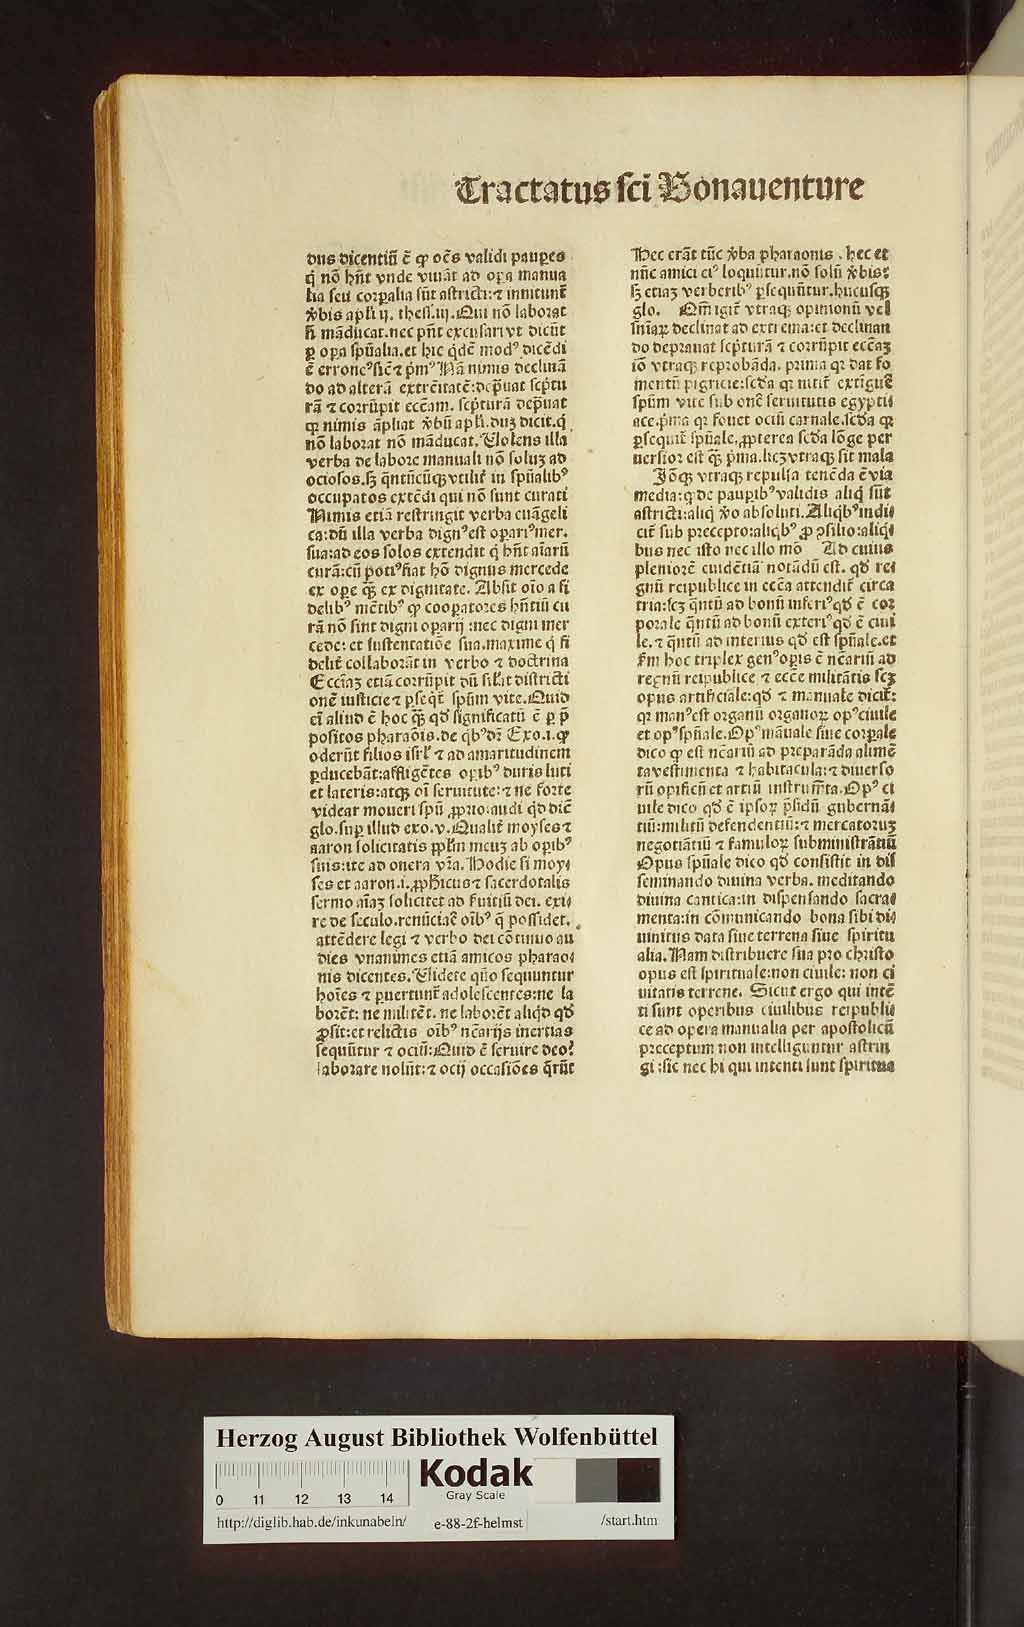 Tractatus sci Bonauenture
dus dicentiū ē ꝙ oēs validi pauꝑes
q̇ nō hn̄t vnde viuāt ad oꝑa manua
lia seu corꝑalia sūt astricti:⁊ innitunt᷑
v̓bis apl̓i ij. thess.iij. Qui nō laborat
n̄ māducat.nec pn̄t excusari vt dicūt
ꝑ oꝑa spūalia.et hic q̇dē modꝰ dicēdi
ē erroneꝰ sic̄ ⁊ p̄mꝰ Nā nimis declinā
do ad alterā extrēitatē:dep̄uat sc̄ptu
rā ⁊ corrūpit ecc̄am. sc̄pturā dep̄uat
qꝛ nimis āpliat v̓bū apl̓i.duꝫ dicit.q̇
nō laborat nō māducat. Volens illa
verba de labore manuali nō soluꝫ ad
ociosos.sꝫ q̄ntūcūqꝫ vtilit᷑ in spūalibꝰ
occupatos extēdi qui nō sunt curati
Nimis etiā restringit verba euāgeli
ca:dū illa verba dignꝰ est oꝑariꝰ mer.
sua:ad eos solos extendit q̇ hn̄t aīarū
curā:cū potiꝰ fiat hō dignus mercede
ex oꝑe q̄ꝫ ex dignitate. Absit oīo a fi
delibꝰ mētibꝰ ꝙ cooꝑatores hn̄tiū cu
rā nō sint digni oꝑarij :nec digni mer
cede: et sustentatiōe sua.maxime q̇ fi
delit᷑ collaborāt in verbo ⁊ doctrina
Ecc̄iaꝫ etiā corrūpit dū sil̓at districti
onē iusticie ⁊ ꝑseq̇t᷑ spūm vite. Quid
eī aliud ē hoc q̄ꝫ qd̓ significatū ē ꝑ p̄
positos pharaōis.de q̇bꝰ dr̄ Exo.i.ꝙ
oderūt filios isrl̓ ⁊ ad amaritudinem
ꝑducebāt:affligētes oꝑibꝰ duris luti
et lateris:atqꝫ oī seruitute:⁊ ne forte
videar moueri spū ꝓprio:audi q̇d dic̄
glo.suꝑ illud exo.v. Qualit᷑ moyses ⁊
aaron solicitatis ppl̓m meuꝫ ab oꝑibꝰ
suis:ite ad onera vr̄a. Hodie si moy
ses et aaron.i.ꝓph̓icus ⁊ sacerdotalis
sermo aīaꝫ solicitet ad s̓uitiū dei. exi
re de seculo.renūciar̄ oībꝰ q̄ possidet.
attēdere legi ⁊ verbo dei cōtinuo au
dies vnanimes etiā amicos pharao
nis dicentes. Videte quō sequuntur
hoīes ⁊ ꝑuertunt᷑ adolescentes:ne la
borēt: ne militēt. ne laborēt aliq̇d qd̓
ꝓsit:et relictis oībꝰ nēcarijs inertias
sequūtur ⁊ ociū: Quid ē seruire deo?
laborare nolūt:⁊ ocij occasiōes q̄rūt
Hec erāt tūc v̓ba pharaonis . hec et
nūc amici eiꝰ loquūtur.nō solū v̓bis:
sꝫ etiaꝫ verberibꝰ ꝑsequūtur.hucusqꝫ
glo. Qm̄ igit᷑ vtraqꝫ opinionū vel
sn̄iaꝝ declinat ad extrema:et declinan
do deprauat sc̄pturā ⁊ corrūpit ecc̄aꝫ
iō vtraqꝫ reprobāda. prima qꝛ dat fo
mentū pigricie:sc̄da qꝛ nitit᷑ extīguē
spūm vite sub onē seruitutis egyptii
ace.p̄ma qꝛ fouet ociū carnale.sc̄da qꝛ
ꝑsequit᷑ spūale.ꝓpterea sc̄da lōge per
uersior est q̄ꝫ p̄ma.lic̄ꝫ vtraqꝫ sit mala
Jōqꝫ vtraqꝫ repulsa tenēda ē via
media:q̇ de pauꝑibꝰ validis aliq̇ sūt
astricti:aliq̇ v̓o absoluti. Aliq̇bꝰ indi
cit᷑ sub precepto:aliq̇bꝰ ꝓ ꝯsilio:aliq̇
bus nec isto nec illo mō Ad cuius
pleniorē euidētiā notādū est. qd̓ rei
gnū reipublice in ecc̄a attendit᷑ circa
tria:scꝫ q̄ntū ad bonū inferiꝰ qd̓ ē cor
porale q̄ntū ad bonū exteriꝰ qd̓ ē ciui
le.⁊ q̄ntū ad interius qd̓ est spūale.et
fm hoc triplex genꝰ oꝑis ē nēariū ad
regnū reipublice ⁊ ecc̄e militātis scꝫ
opus artificiale:qd̓ ⁊ manuale dicit᷑:
qꝛ manꝰ est organū organoꝝ opꝰ ciuile
et opꝰ spūale. Opꝰ māuale siue corꝑale
dico ꝙ est nēariū ad preparāda alimē
ta vestimenta ⁊ habitacula:⁊ diuerso
rū opificū et artiū instrum̄ta. Opꝰ ci
uile dico qd̓ ē ipsoꝝ p̄sidū gubernā
tiū:militū defendentiū:⁊ mercatoruꝫ
negotiātiū ⁊ famuloꝝ subministrātiū
Opus spūale dico qd̓ consistit in dis
seminando diuina verba. meditando
diuina cantica:in dispensando sacra
menta:in cōmunicando bona sibi di
uinitus data siue terrena siue spiritu
alia. Nam distribuere sua pro christo
opus est spirituale:non ciuile: non ci
uitatis terrene. Sicut ergo qui intē
ti sunt operibus ciuilibus reipubli
ce ad opera manualia per apostolicū
preceptum non intelliguntur astrin
gi :sic nec hi qui intenti sunt spiritua
Herzog August Bibliothek Wolfenbüttel
Kodak
Gray Scale
0 11 12 13 14
http://diglib.hab.de/inkunabeln/ e-88-2f-helmst /start.htm